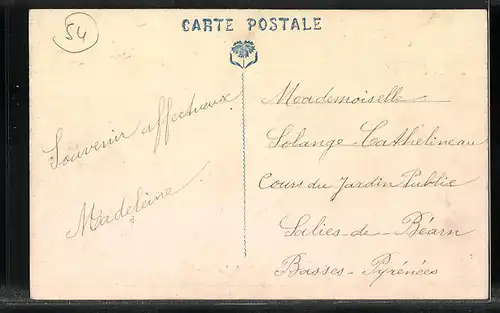 54
CARTE POSTALE
Souvenir affectueux
Madeleine
Meademoiselle
Solange Cathelineau
Cours du Jardin Public
Salies-de-Béarn
Basses-Pyrénées